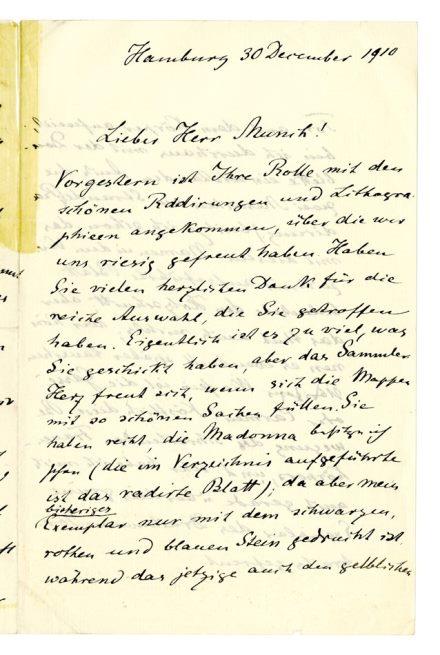 Hamburg 30 December 1910
Lieber Herr Munch!
Vorgestern ist Ihre Rolle mit den
schönen Radirungen und Lithogra-
phieen angekommen, über die wir
uns riesig gefreut haben. Haben
Sie vielen herzlichsten Dank für die
reiche Auswahl, die Sie getroffen
haben. Eigentlich ist es zu viel, was
Sie geschickt haben, aber das Sammler
Herz freut sich, wenn sich die Mappen
mit so schönen Sachen füllen. Sie
haben recht, die Madonna besitze ich
schon (die im Verzeichnis aufgeführte
ist das radirte Blatt); da aber mein
bisheriges
Exemplar nur mit dem schwarzen,
rothen und blauen Stein gedruckt ist.
während das jetzige auch den gelblichen